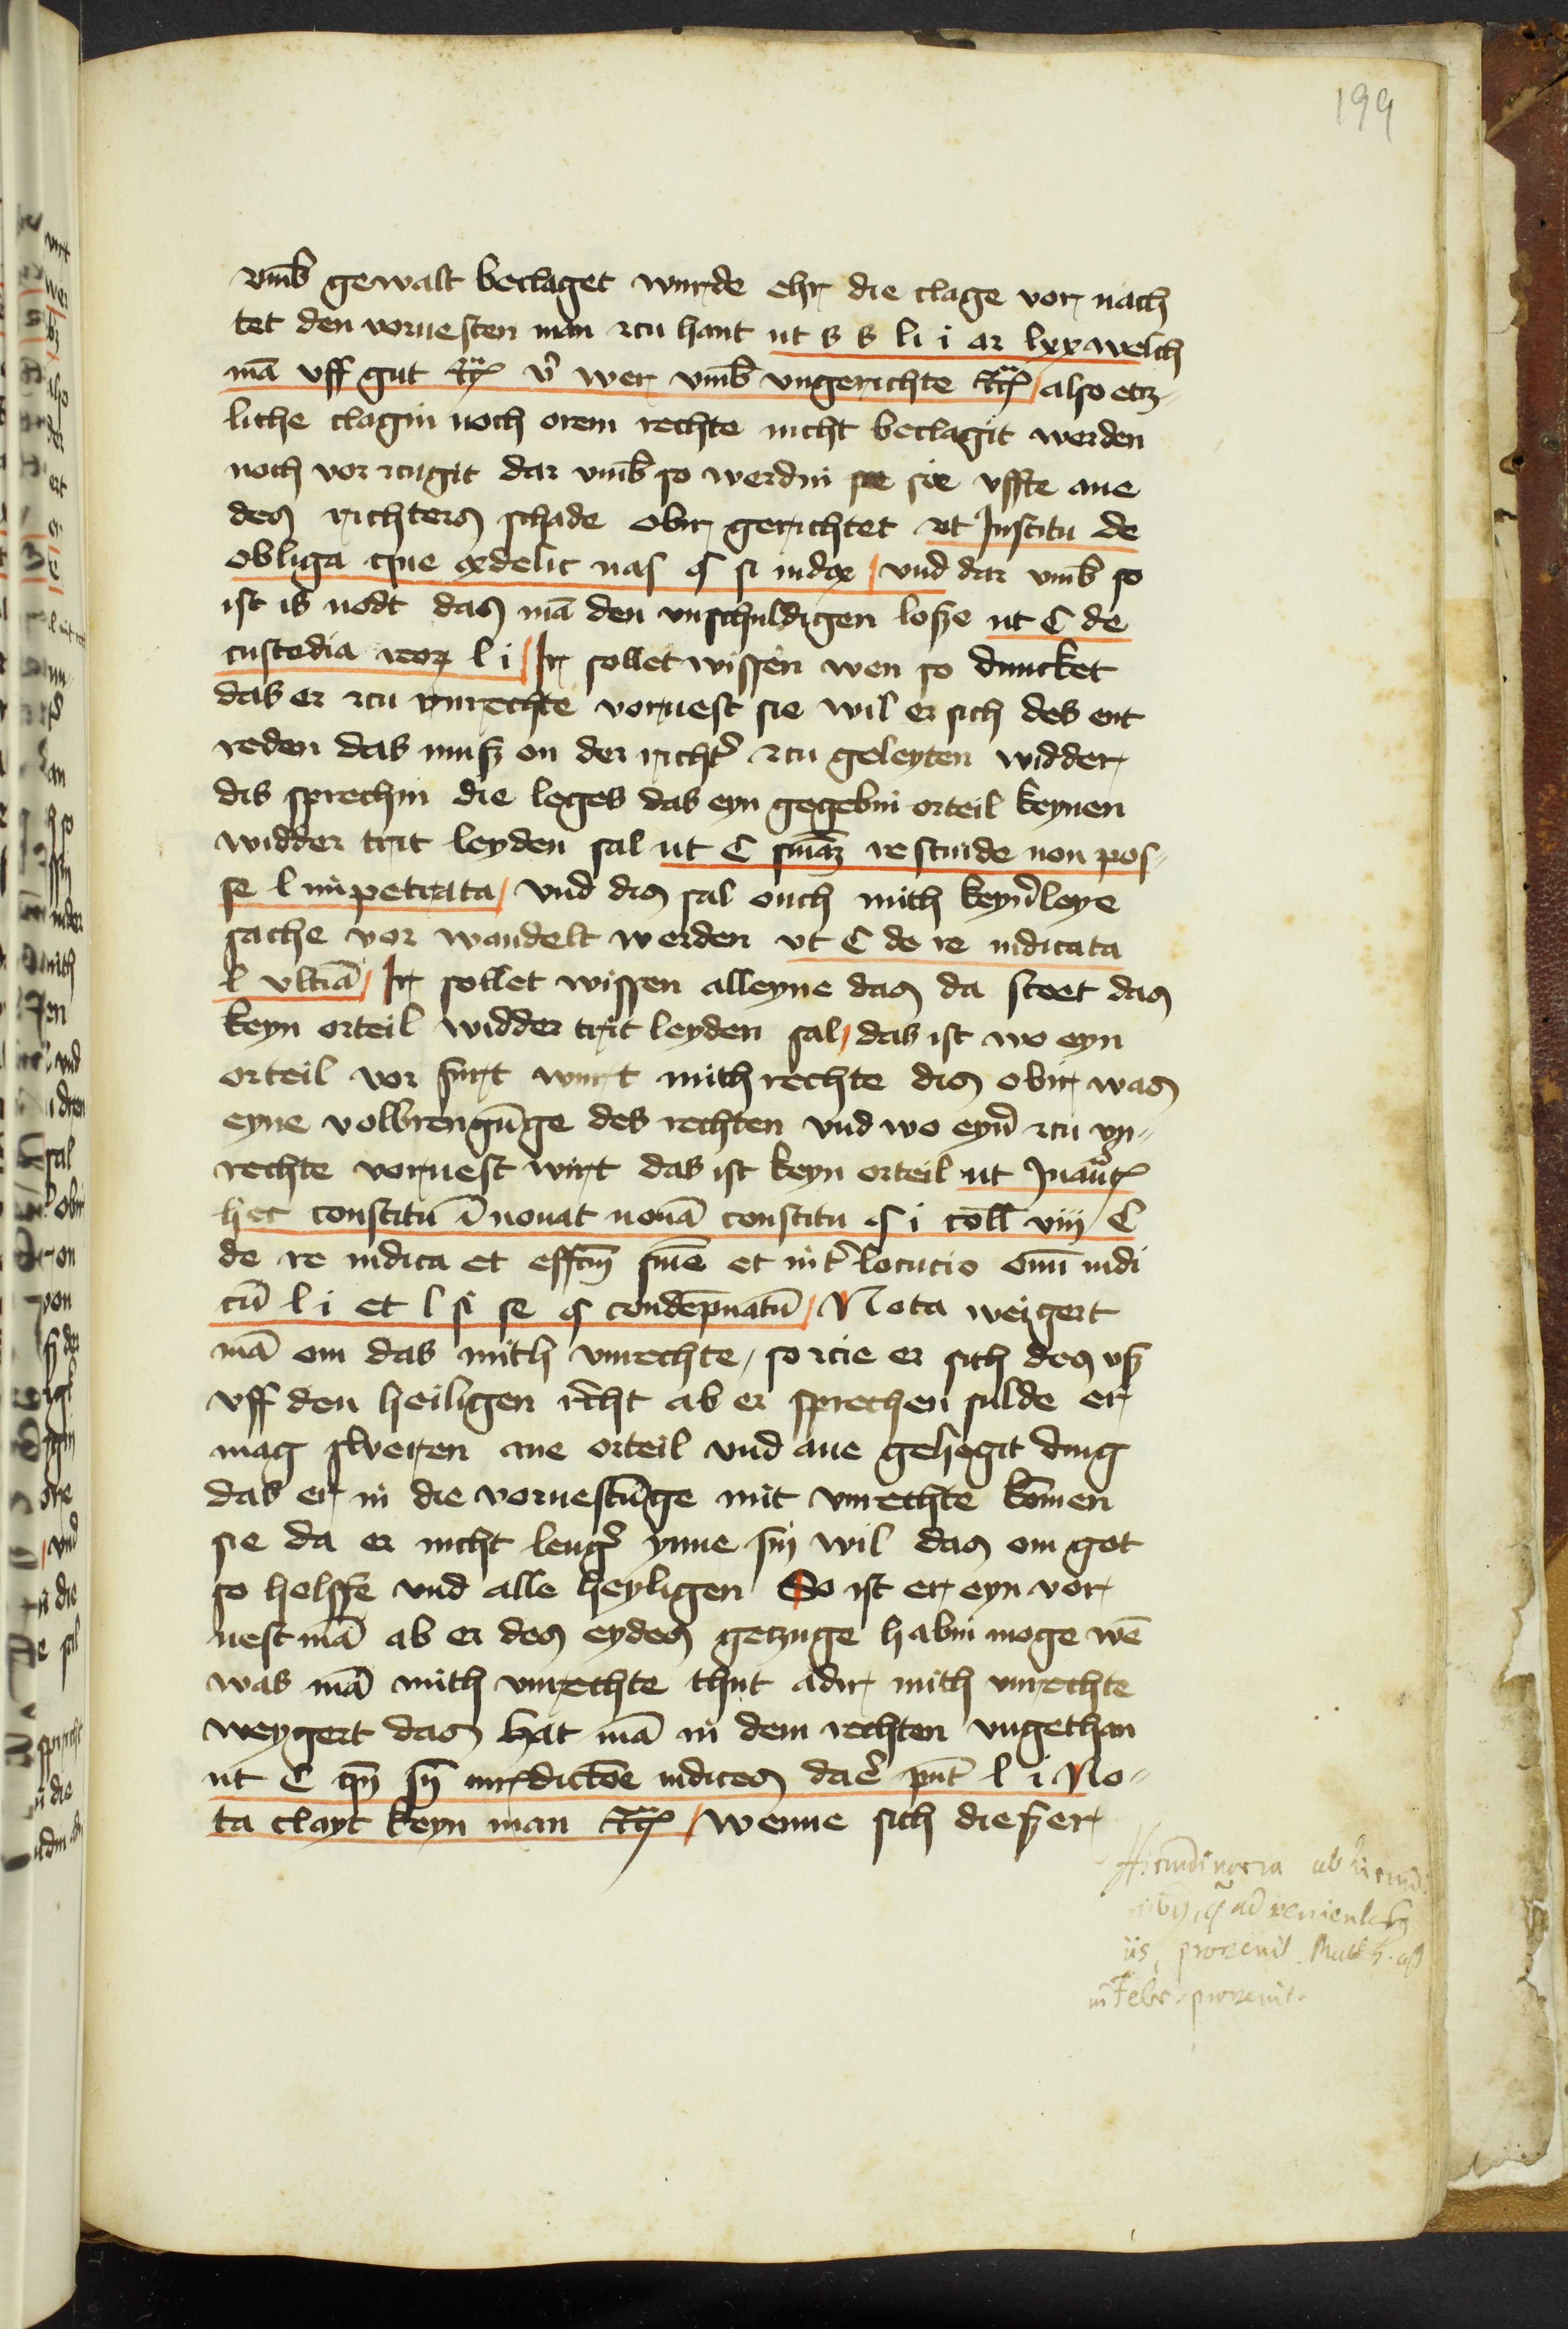 199
vmb gewalt beclaget wurde ehr die clage vor nach
tet den voruesten man zcu hant ut s s li i ar lxx welch
mā uff gut rc v̄ wer vmb vngerichte rc also etz-
liche clagin noch orem rechte nicht beclagit werden
noch vor zcugit dar vmb so werdin sie uffte ane
des richters schade obir gerichtet ut Institu de
obliga que ex delic nas § si iudex / vnd dar vmb so
ist is nodt das mā den vnschuldigen losze ut C de
custodia reor l i / Ir sollet wissen wen so duncket
das er zcu vnrechte voruest sie wil er sich des ent
reden das musz on der richt̄ zcu geleyten widder
dis sprechin die leges das eyn gegebin orteil keynen
widder trit leyden sal ut C sniāz rescinde non pos-
se l impetrata / vnd dis sal ouch mith keyn̄leye
sache vor wandelt werden vt C de re iudicata
l vltiā / Ir sollet wissen alleyne das da steet das
keyn orteil widder trit leyden sal / das ist wo eyn
orteil vor furt wurt mith rechte dis obir was
eyne volbrengūge des rechten vnd wo eyn̄ zcu vn-
rechte voruest wirt das ist keyn orteil ut In aut̄
hec constitū īnouat nouā constitu § i coll viij / C
de re iudica et effcū snie et int̄locucio omī iudi
cū l i et l si se § condēpnatū / Nota weigert
mā om das mith vnrechte / so zcie er sich des usz
uff den heiligen n̄cht ab er sprechen sulde er
mag sweren ane orteil vnd ane gehegit ding
das er in die voruestūge mit vnrechte komen
sie da er nicht lenḡ ynne sin wil das om got
so helffe vnd alle heyligen So ist er eyn vor
uest mā ab er des eydes getzuge habin moge wē
was mā mith vnrechte thut adir mith vnrechte
weygert das hat mā in dem rechten vngethan
ut C iurdictōe iudices l i No-
ta clayt keyn man rc / wenne sich dieszer
in Febr. provenit.